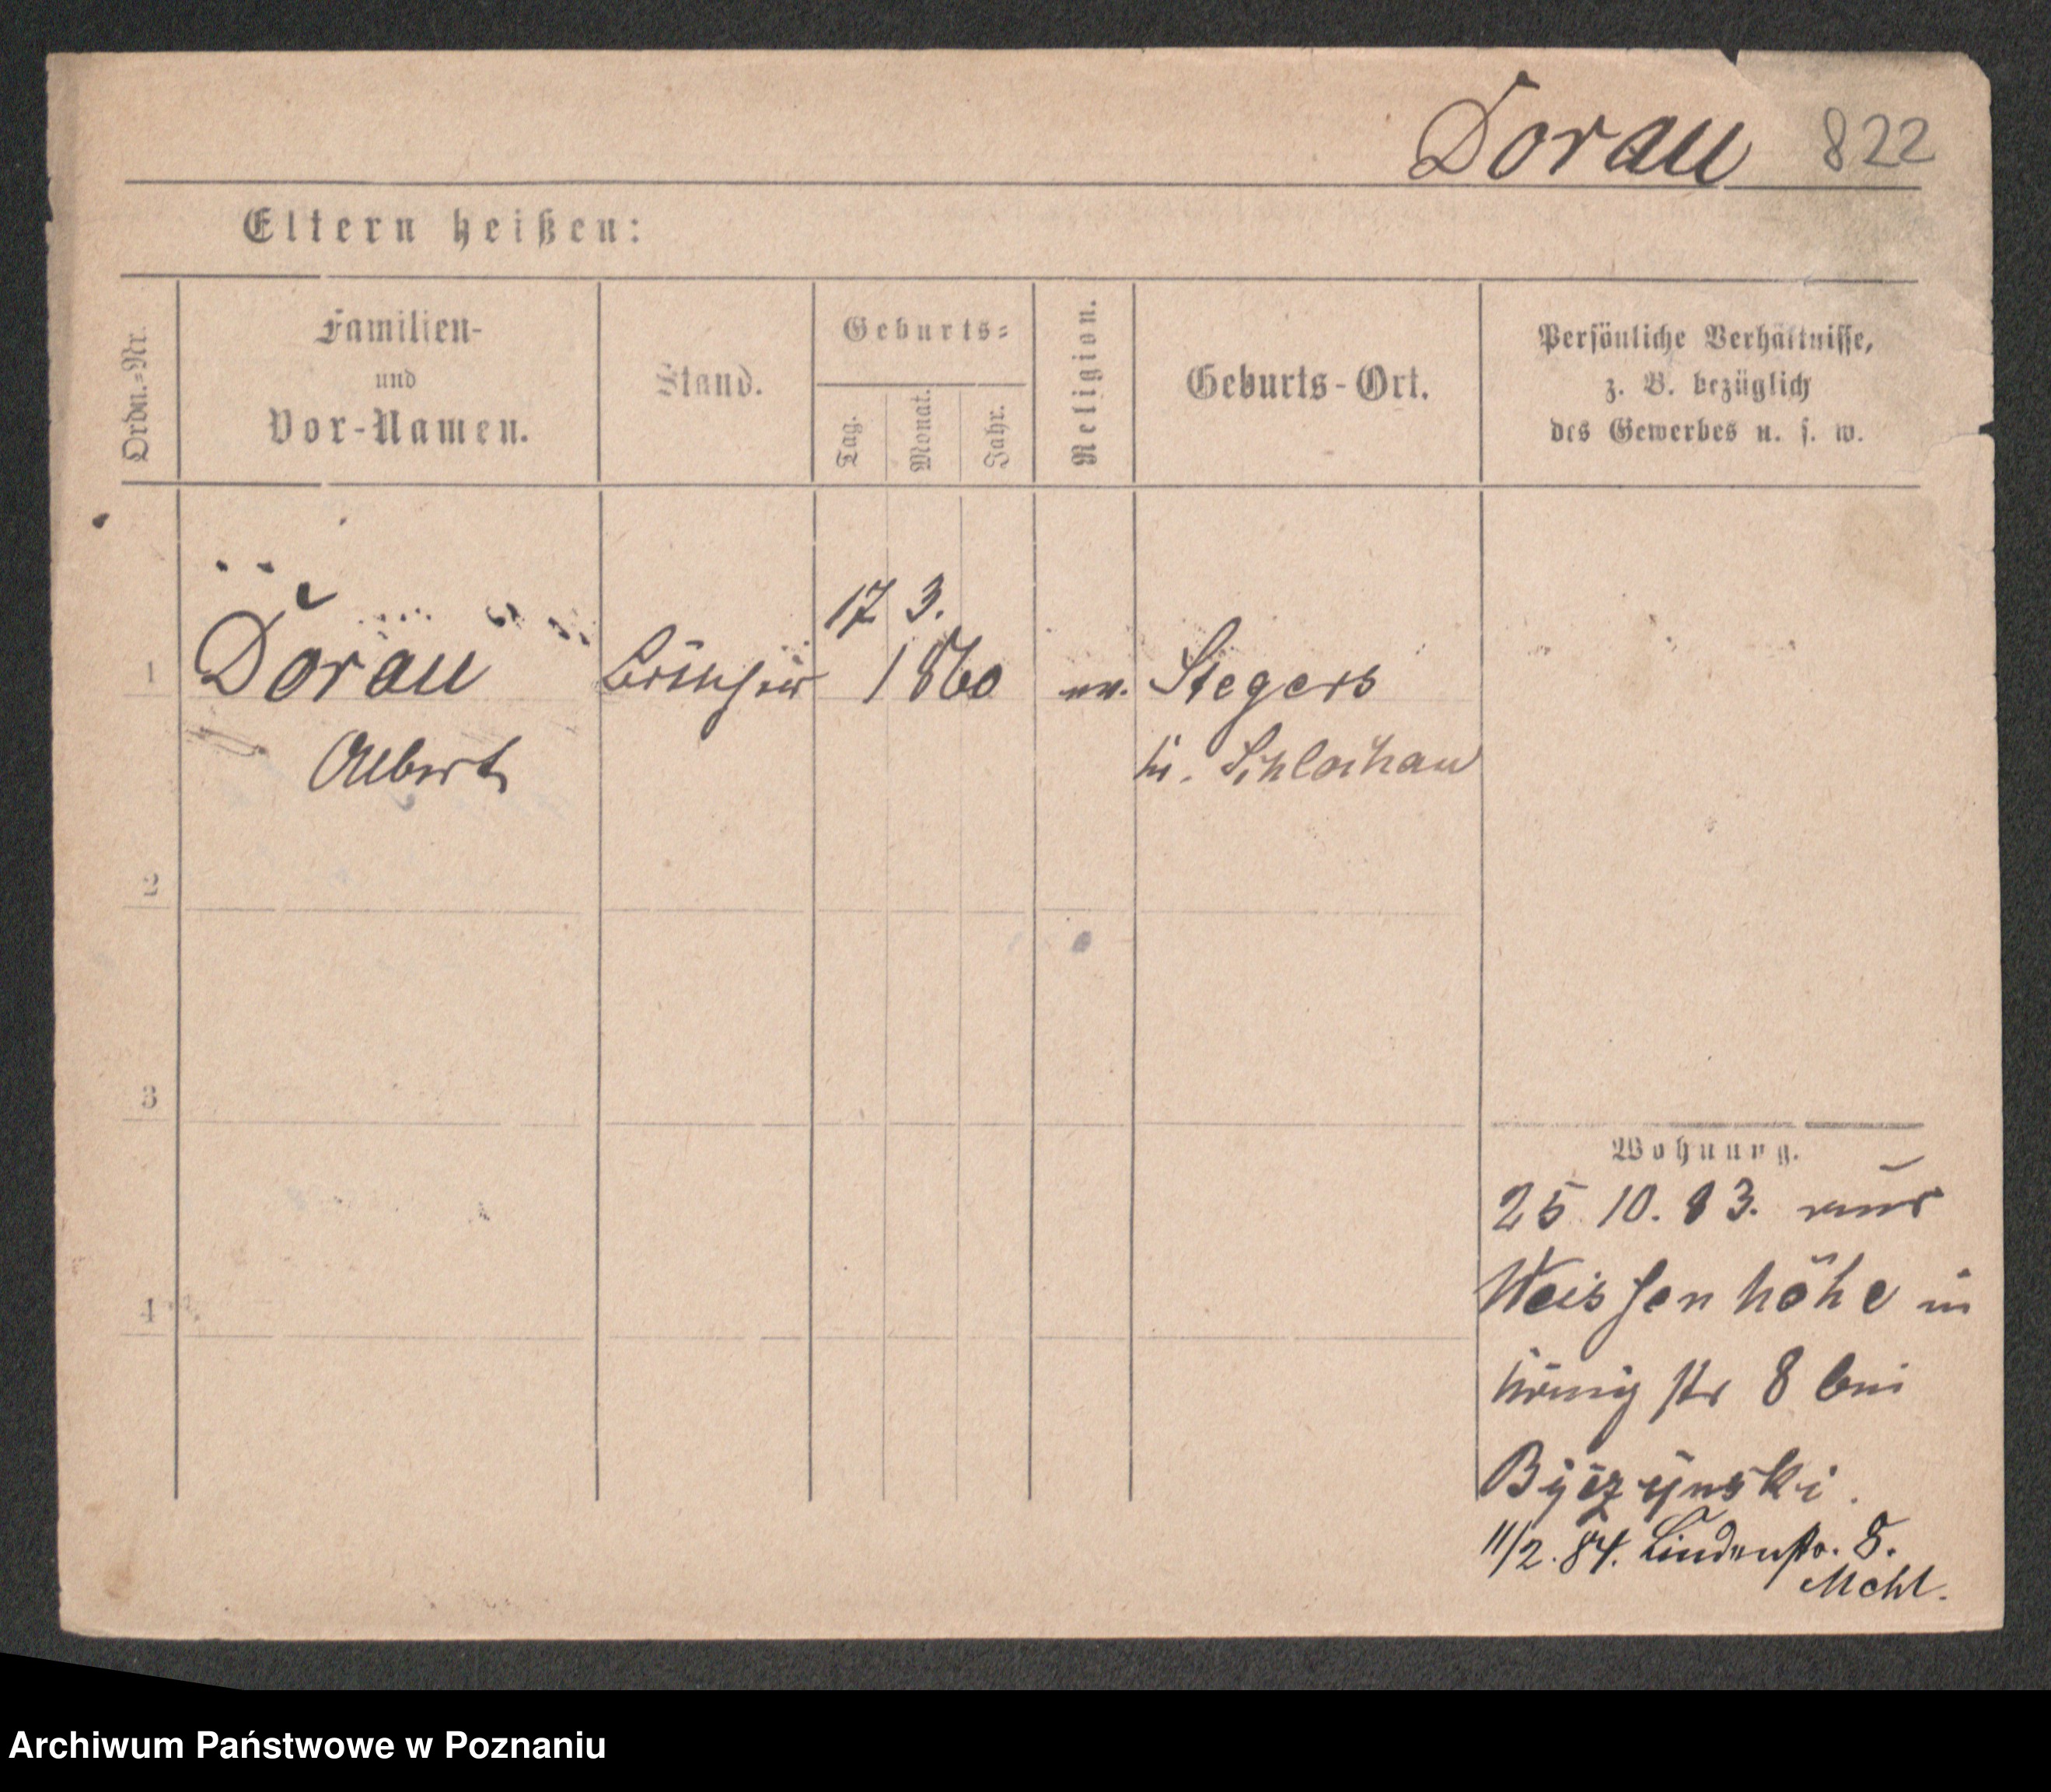 Dorau 822
Eltern heißen:
Ordn.=Nr.
Familien-
und
Vor-Namen.
Stand.
Geburts=
Tag.
Monat.
Jahr.
Religion.
Geburts-Ort.
Persönliche Verhältnisse,
z. B. bezüglich
des Gewerbes u. s. w.
17 3.
1 Dorau 1860 ev. Stegers
Albert Kr. Schlochau
2
3
4
Wohnung.
25 10. 83. aus
Weissenhöhe in
König str 8 bei
Byczynski.
11/2. 84. Lindenstr. 8.
Mehl.
Archiwum Państwowe w Poznaniu